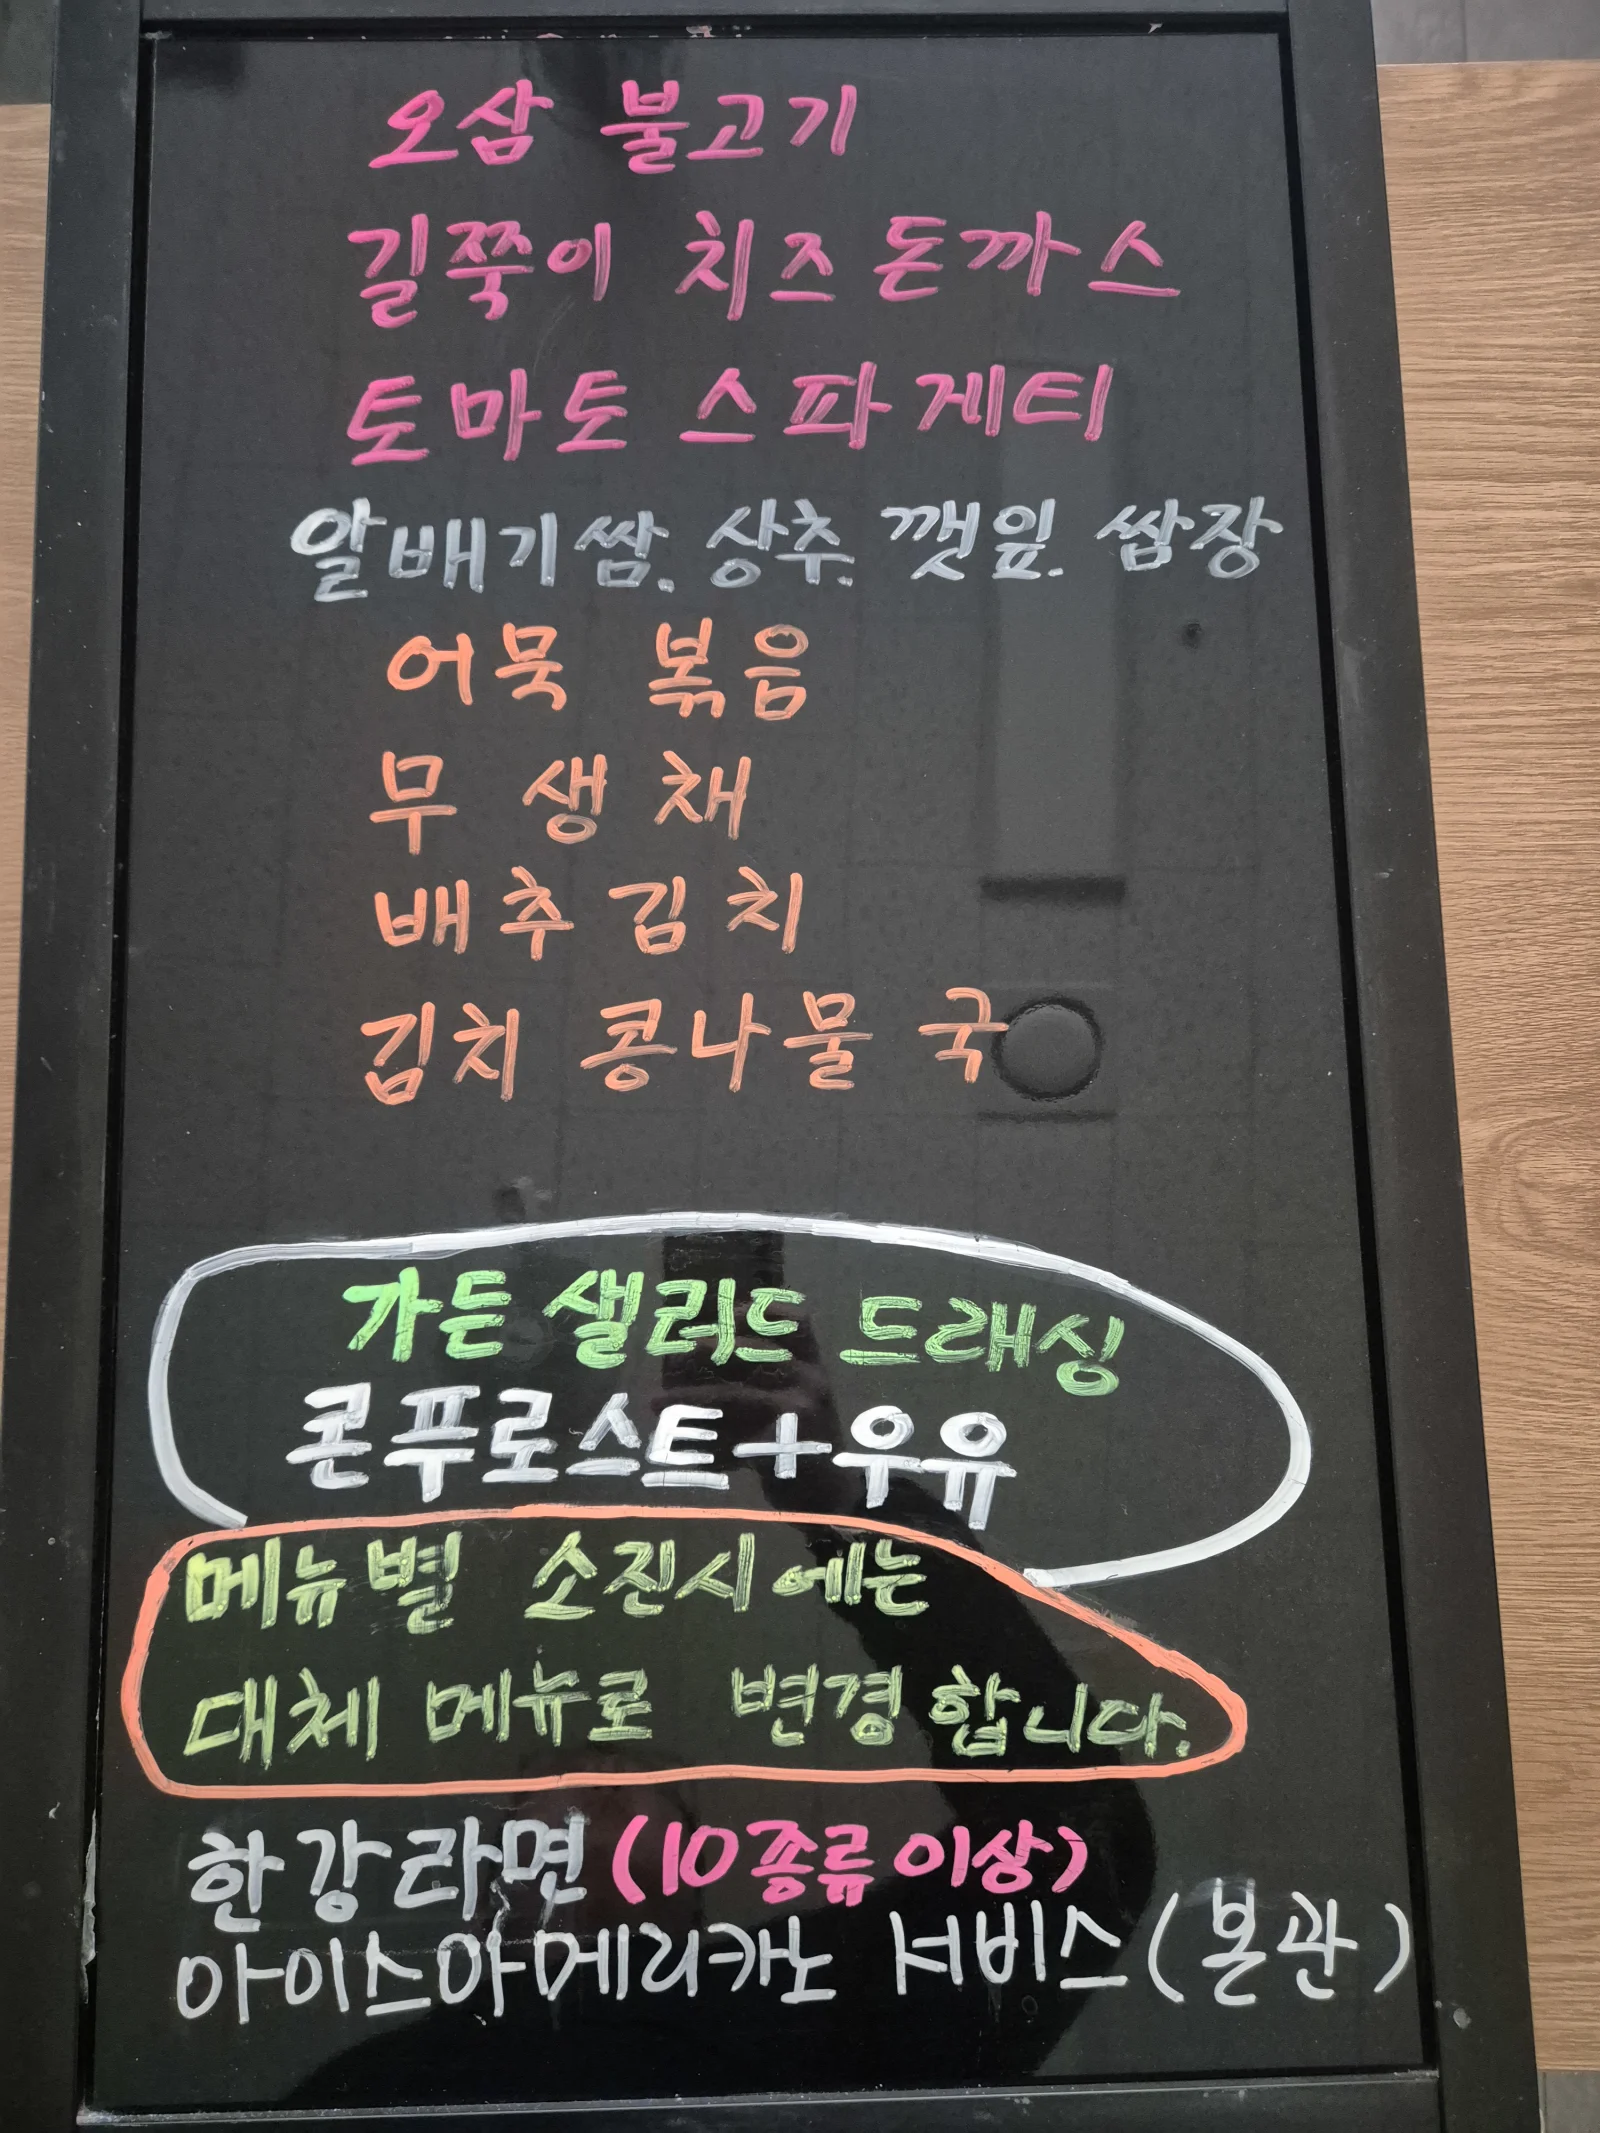 오삼 불고기
길쭉이 치즈돈까스
토마토 스파게티
알배기쌈. 상추. 깻잎. 쌈장
어묵 볶음
무생채
배추김치
김치 콩나물 국
가든 샐러드 드래싱
콘푸로스트+우유
메뉴별 소진시에는
대체 메뉴로 변경합니다.
한강라면 (10종류이상)
아이스아메리카노 서비스(본관)